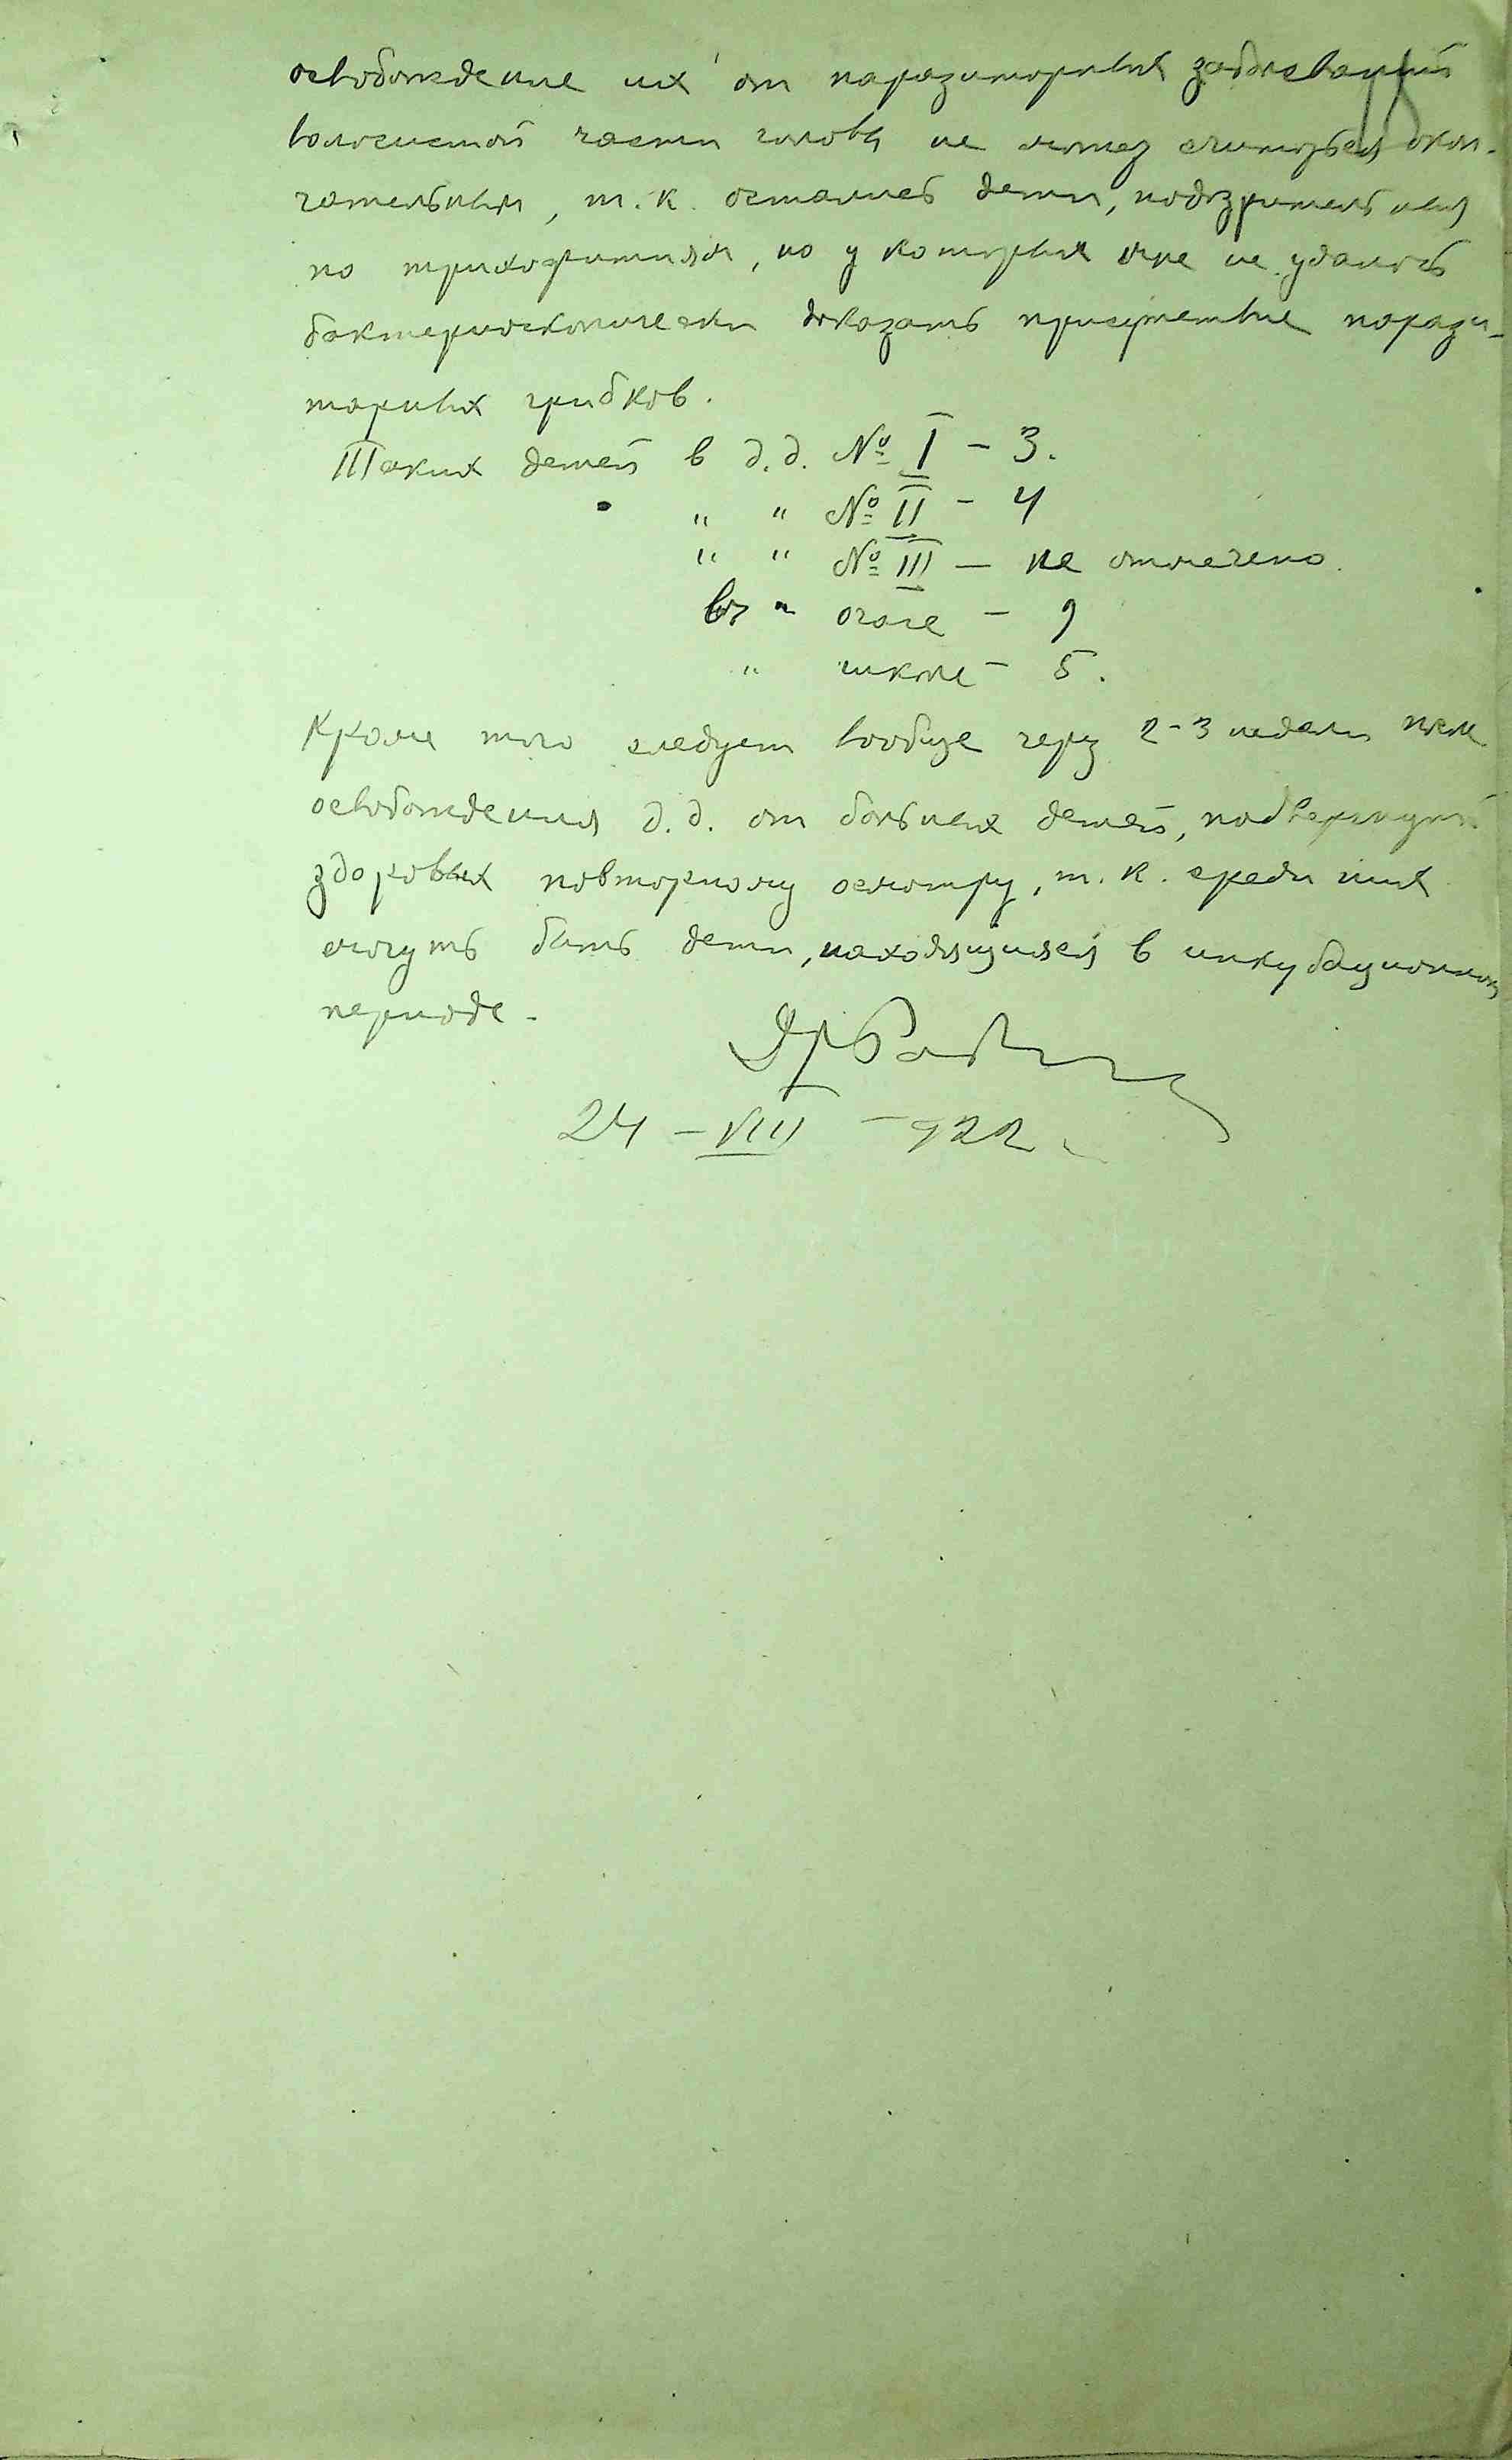 освобождение их от паразитарных заболеваний
волосистой части головы не может считаться окон-
чательным, т. к. остались дети, подозрительные
по трихофитиям, но у которых мне не удалось
бактериоскопически доказать присутствие парази-
тарных грибков.
Таких детей в д.д. № I – 3.
" " № II – 4
" " № III – не отмечено.
в " очаге – 9
" школе – 5.
Кроме того следует вообще через 2-3 недели после
освобождения д.д. от больных детей, подвергнуть
здоровых повторному осмотру, т. к. среди них
могут быть дети, находящиеся в инкубационном
периоде.
Др
24 – VIII – 922